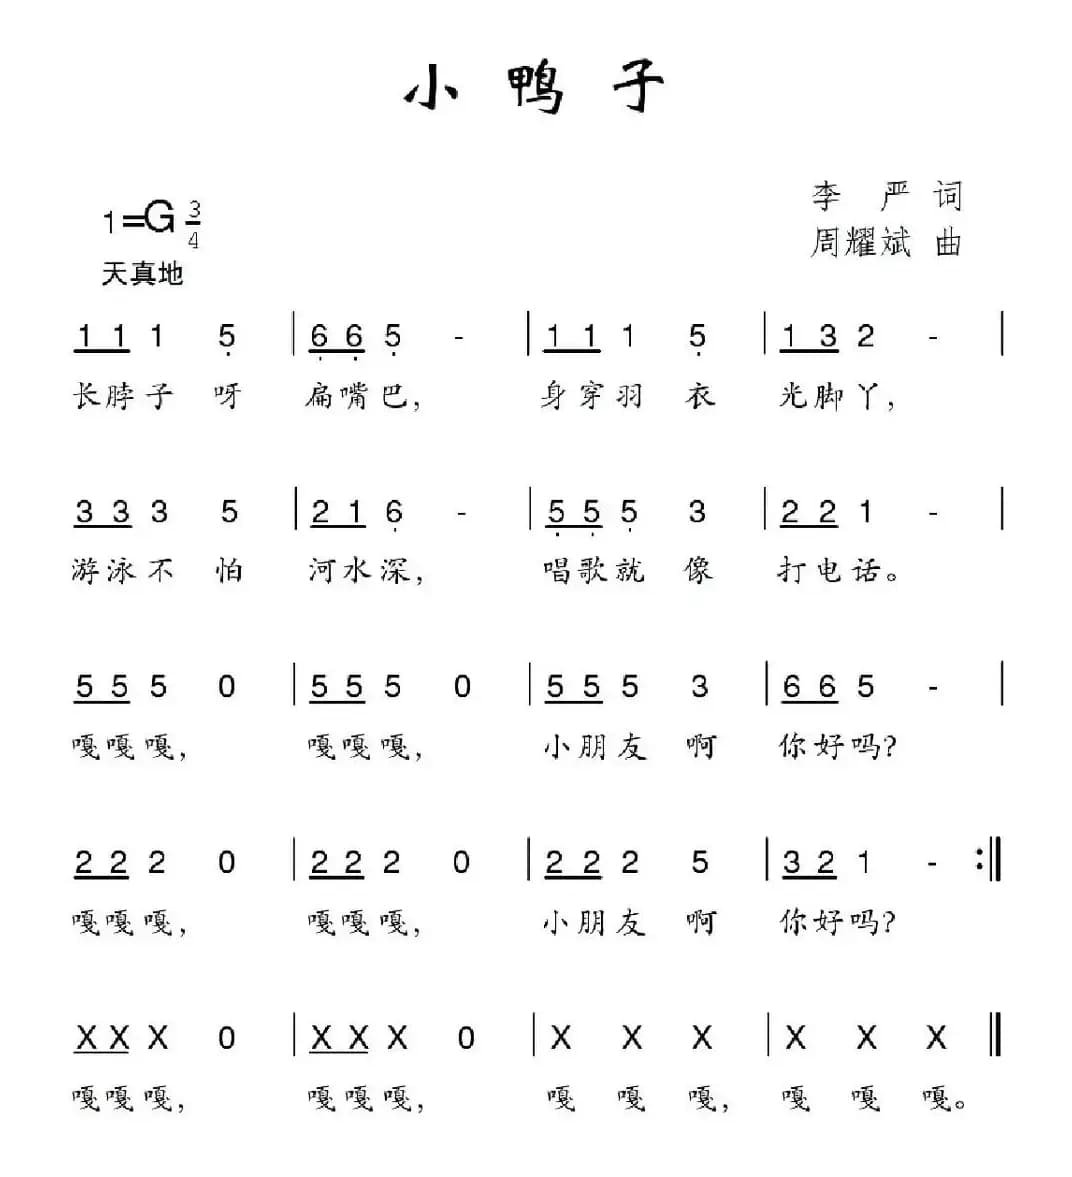 小鸭子
李 严 词
1=G 3/4
周耀斌 曲
天真地
1 1 1 5 | 6 6 5 - | 1 1 1 5 | 1 3 2 - |
长脖子呀 扁嘴巴, 身穿羽衣 光脚丫,
3 3 3 5 | 2 1 6 - | 5 5 5 3 | 2 2 1 - |
游泳不怕 河水深, 唱歌就像 打电话。
5 5 5 0 | 5 5 5 0 | 5 5 5 3 | 6 6 5 - |
嘎嘎嘎, 嘎嘎嘎, 小朋友啊 你好吗?
2 2 2 0 | 2 2 2 0 | 2 2 2 5 | 3 2 1 - :||
嘎嘎嘎, 嘎嘎嘎, 小朋友啊 你好吗?
X X X 0 | X X X 0 | X X X | X X X ||
嘎嘎嘎, 嘎嘎嘎, 嘎 嘎 嘎, 嘎 嘎 嘎。